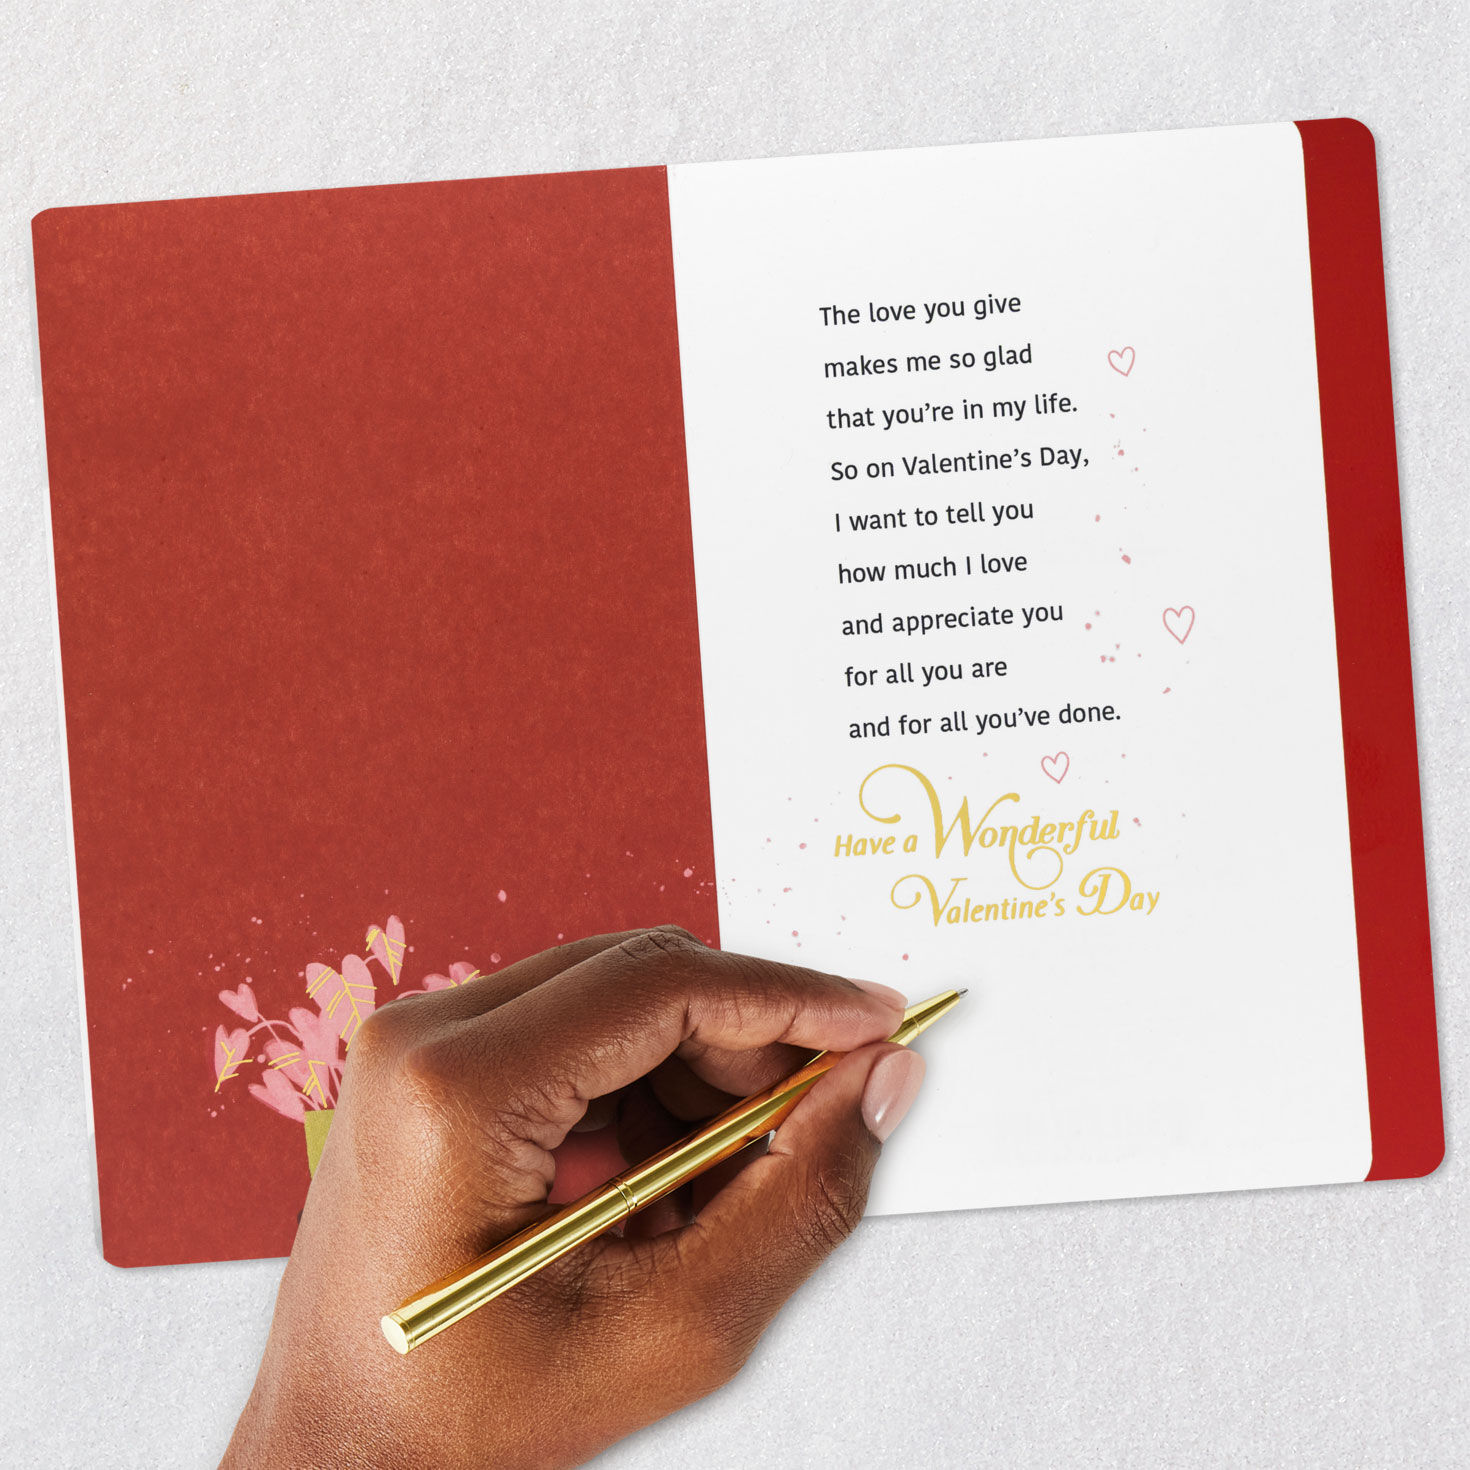 The love you give
makes me so glad
that you’re in my life.
So on Valentine’s Day,
I want to tell you
how much I love
and appreciate you
for all you are
and for all you’ve done.
Have a Wonderful
Valentine’s Day